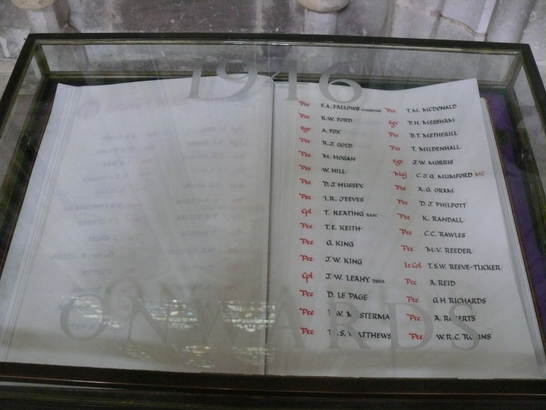 1946
Pte F.A. FALLOWS
Pte R.W. FORD
Sgt A. FOX
Pte R.J. GOOD
Pte M. HOGAN
Pte W. HILL
Pte D.J. HUSSEY
Pte I.R. JEEVES
Cpl T. KEATING RAPC
Pte T.E. KEITH
Pte G. KING
Pte J.W. KING
Cpl J.W. LEAHY
Pte D. LE PAGE
Pte
Pte
Pte T.M. MCDONALD
Sgt P.H. MESSHAM
Pte D.T. METHERILL
Pte T. MILDENHALL
Sgt J.W. MORRIS
Maj C.J.G. MUMFORD MC
Pte A.G. ORAM
Pte D.J. PHILPOTT
Pte K. RANDALL
Pte C.C. RAWLES
Pte M.V. REEDER
Lt Col T.S.W. REEVE-TUCKER
Pte A. REID
Pte G.H. RICHARDS
Pte A. ROBERTS
Pte W.R.C. ROBINS
ONWARDS